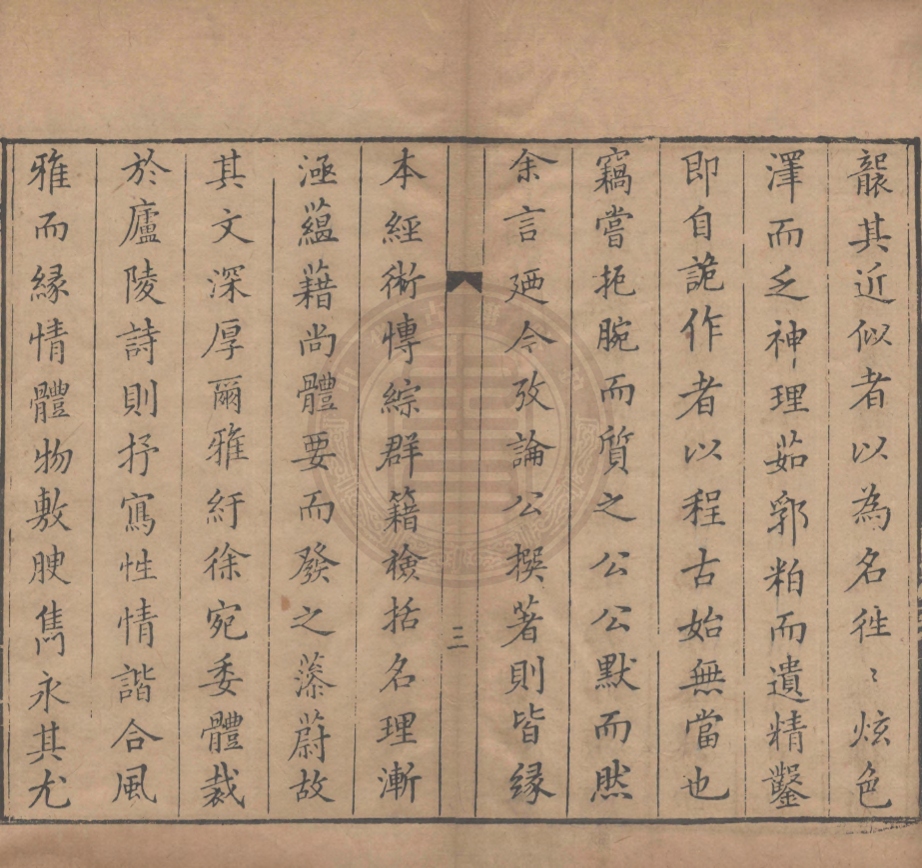 襲其近似者以為名徃〻炫色
澤而乏神理茹郭粕而遺精鑿
即自詭作者以程古始無當也
竊嘗扼腕而質之公公默而然
余言廼今攷論公撰著則皆緣
三
本經術慱綜群籍檢括名理漸
涵蘊藉尚體要而發之藻蔚故
其文深厚爾雅紆徐宛委體裁
於廬陵詩則抒寫性情諧合風
雅而緣情體物敷腴雋永其尤